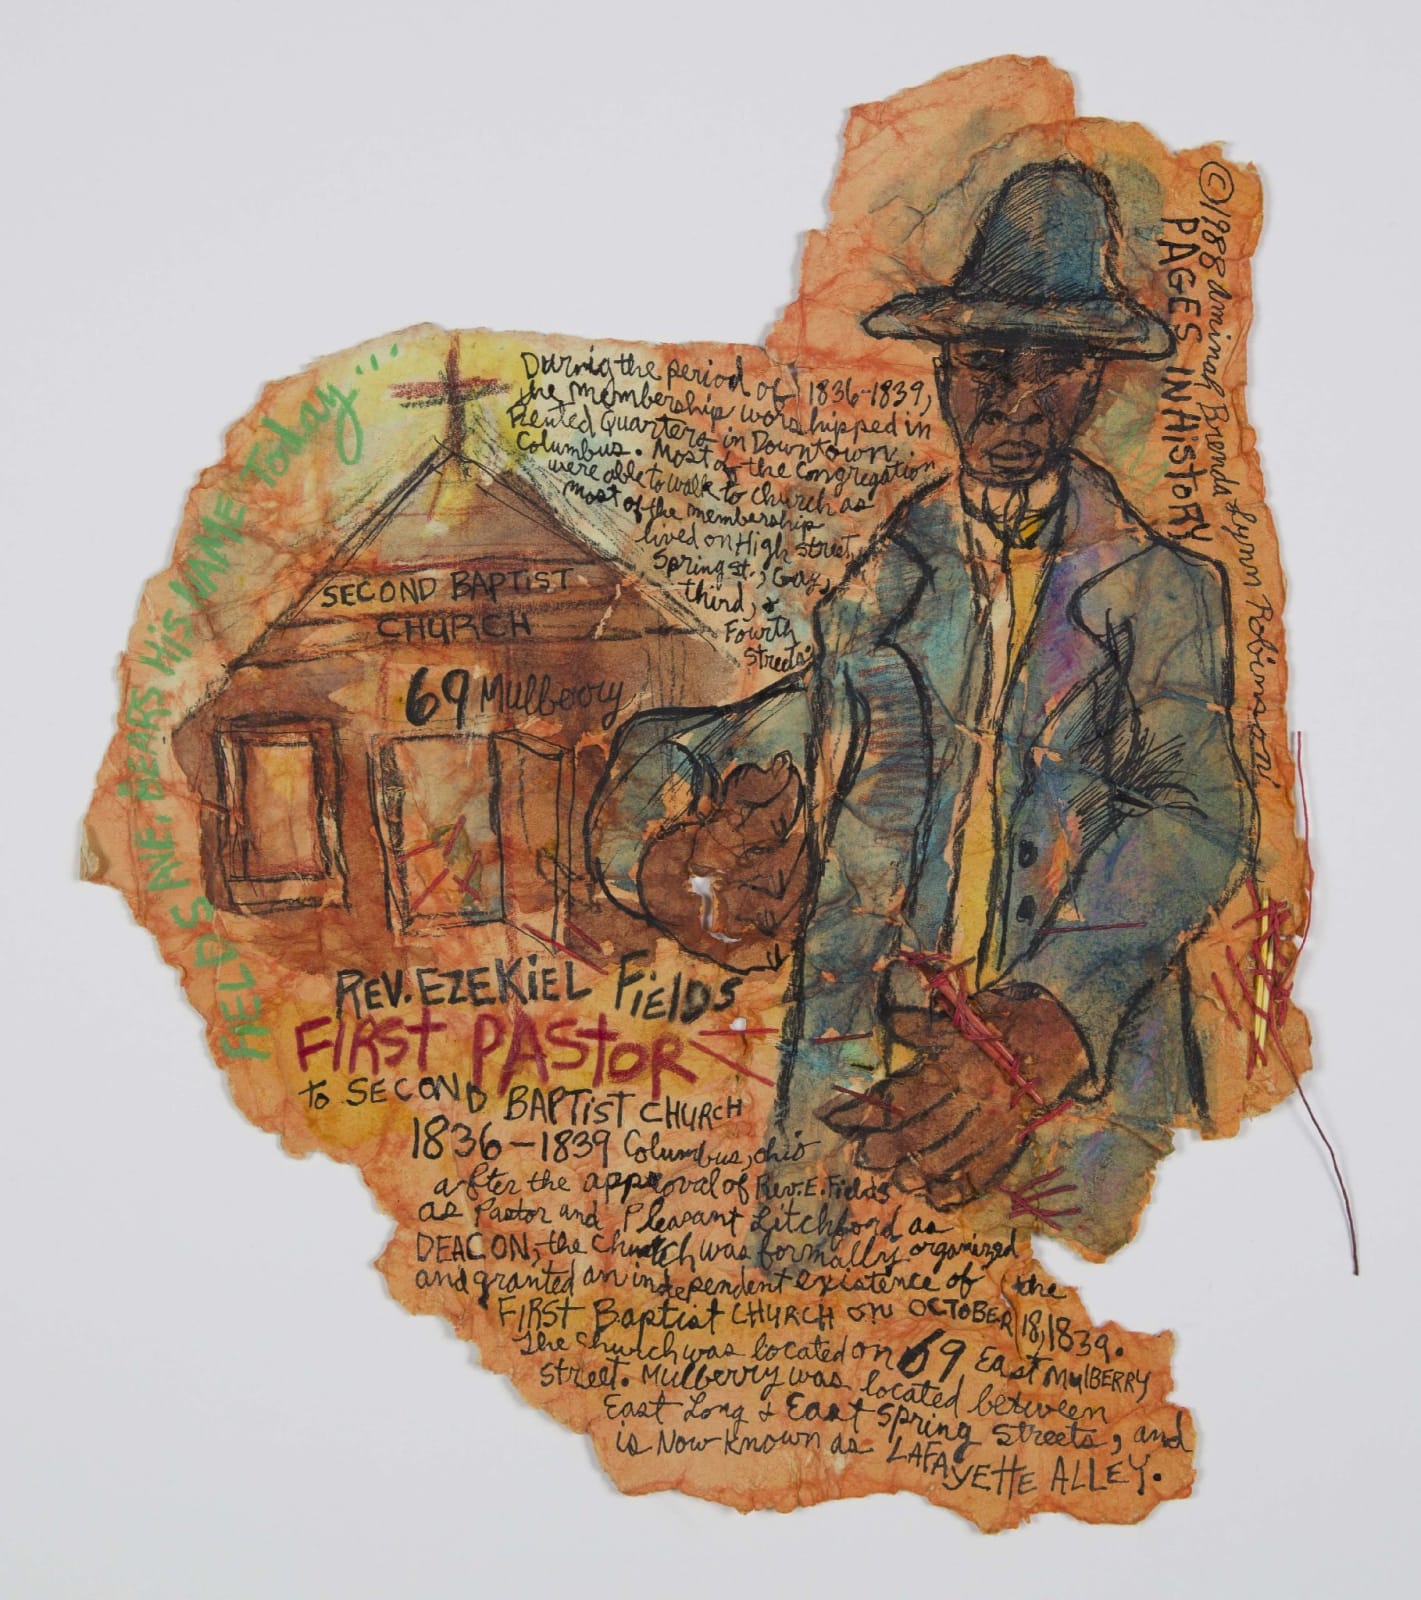 ©1988 Aminah Brenda Lynn Robinson
PAGES IN HISTORY
FIELDS AVE, BEARS HIS NAME Today...
During the period of 1836-1839,
the membership worshipped in
Rented Quarters in Downtown
Columbus. Most of the congregation
were able to walk to church as
most of the membership
lived on High street,
Spring st., Gay,
third, &
Fourth
Streets.
SECOND BAPTIST
CHURCH
69 Mulberry
REV. EZEKIEL FIELDS
FIRST PASTOR
to SECOND BAPTIST CHURCH
1836-1839 Columbus, ohio
after the approval of Rev. E. Fields
as Pastor and Pleasant Litchford as
DEACON, the church was formally organized
and granted an independent existence of the
FIRST Baptist CHURCH on OCTOBER 18, 1839.
The church was located on 69 East MulBERRY
Street. Mulberry was located between
East Long & East Spring Streets, and
is Now known as LAFAYETTE ALLEY.